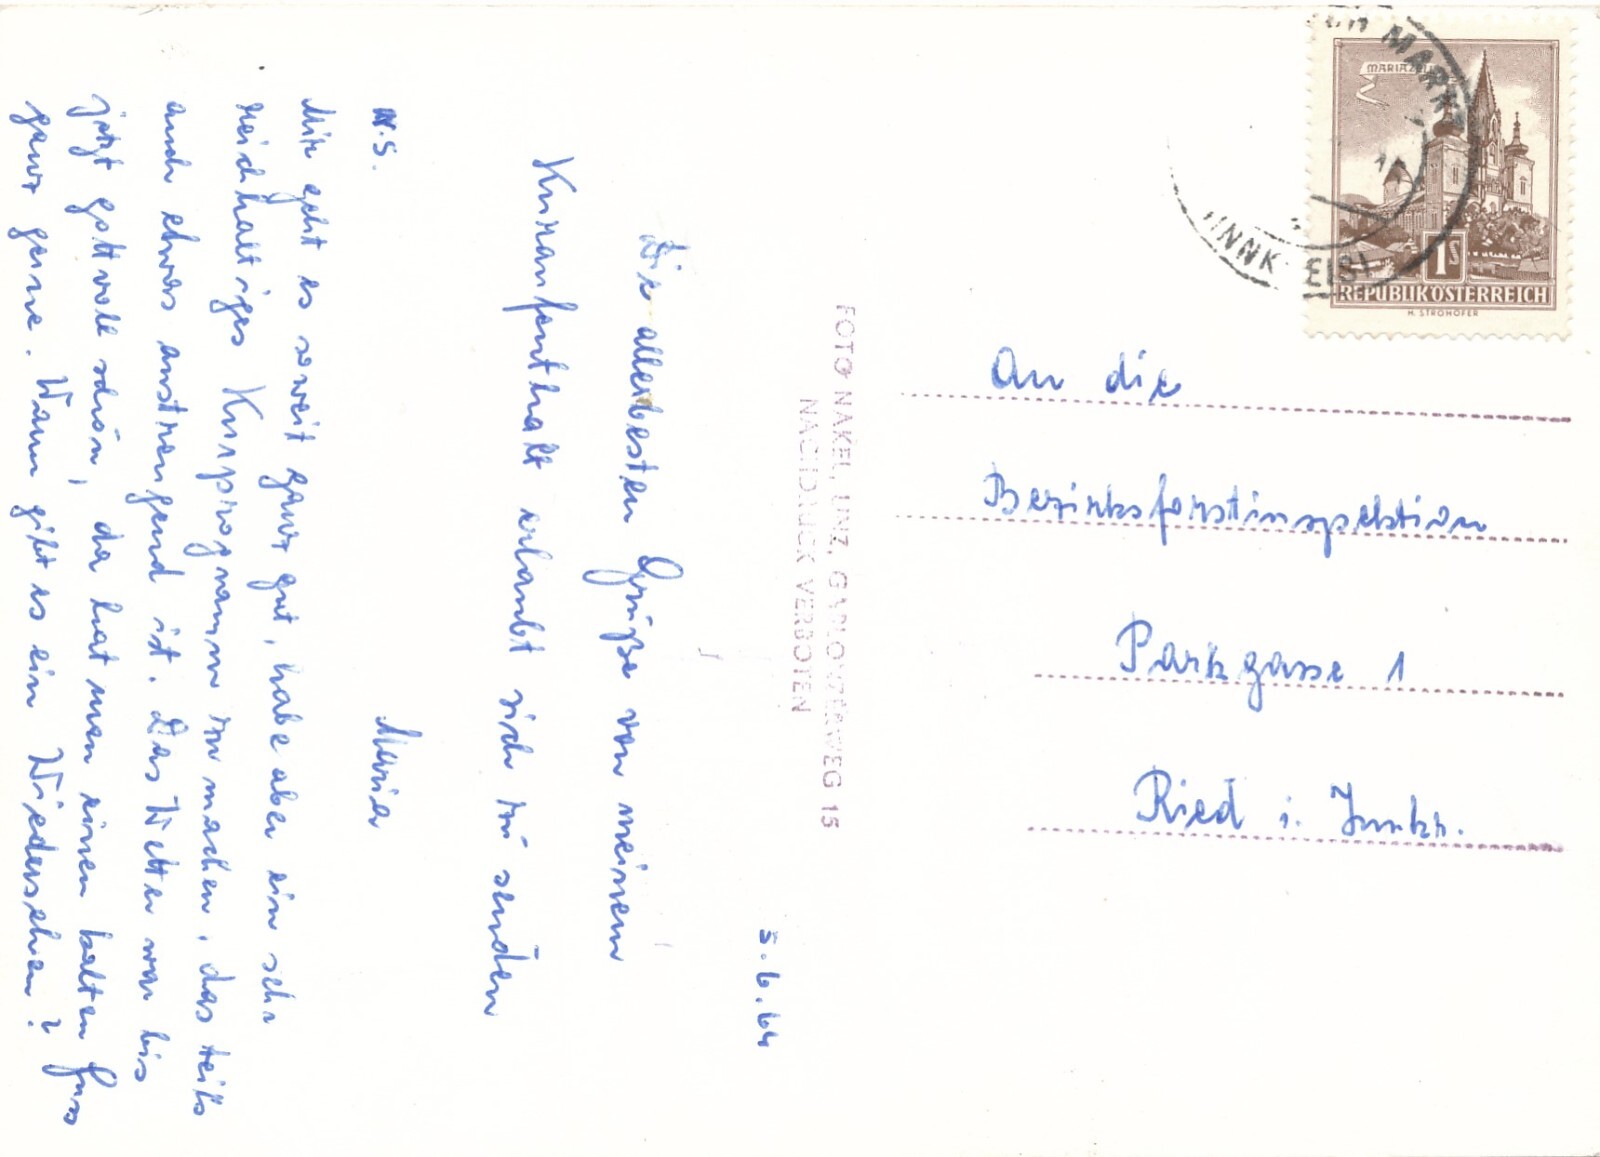 5.6.64
Die allerbesten Grüße von meinem
Kuraufenthalt erlaubt sich zu senden
Maria
N.S.
Mir geht es soweit ganz gut, habe aber ein sehr
reichhaltiges Kurprogramm zu machen, das teils
auch etwas anstrengend ist. Das Wetter war bis
jetzt gottvoll schön, da hat man einen kalten Guss
ganz gerne. Wann gibt es ein Wiedersehen?
FOTO NAKEL, LINZ, GARLONERWEG 15
NACHDRUCK VERBOTEN
MARIAZELL
1S
REPUBLIK ÖSTERREICH
H. STROHOFER
An die
Bezirksforstinspektion
Parkgasse 1
Ried i. Innkr.